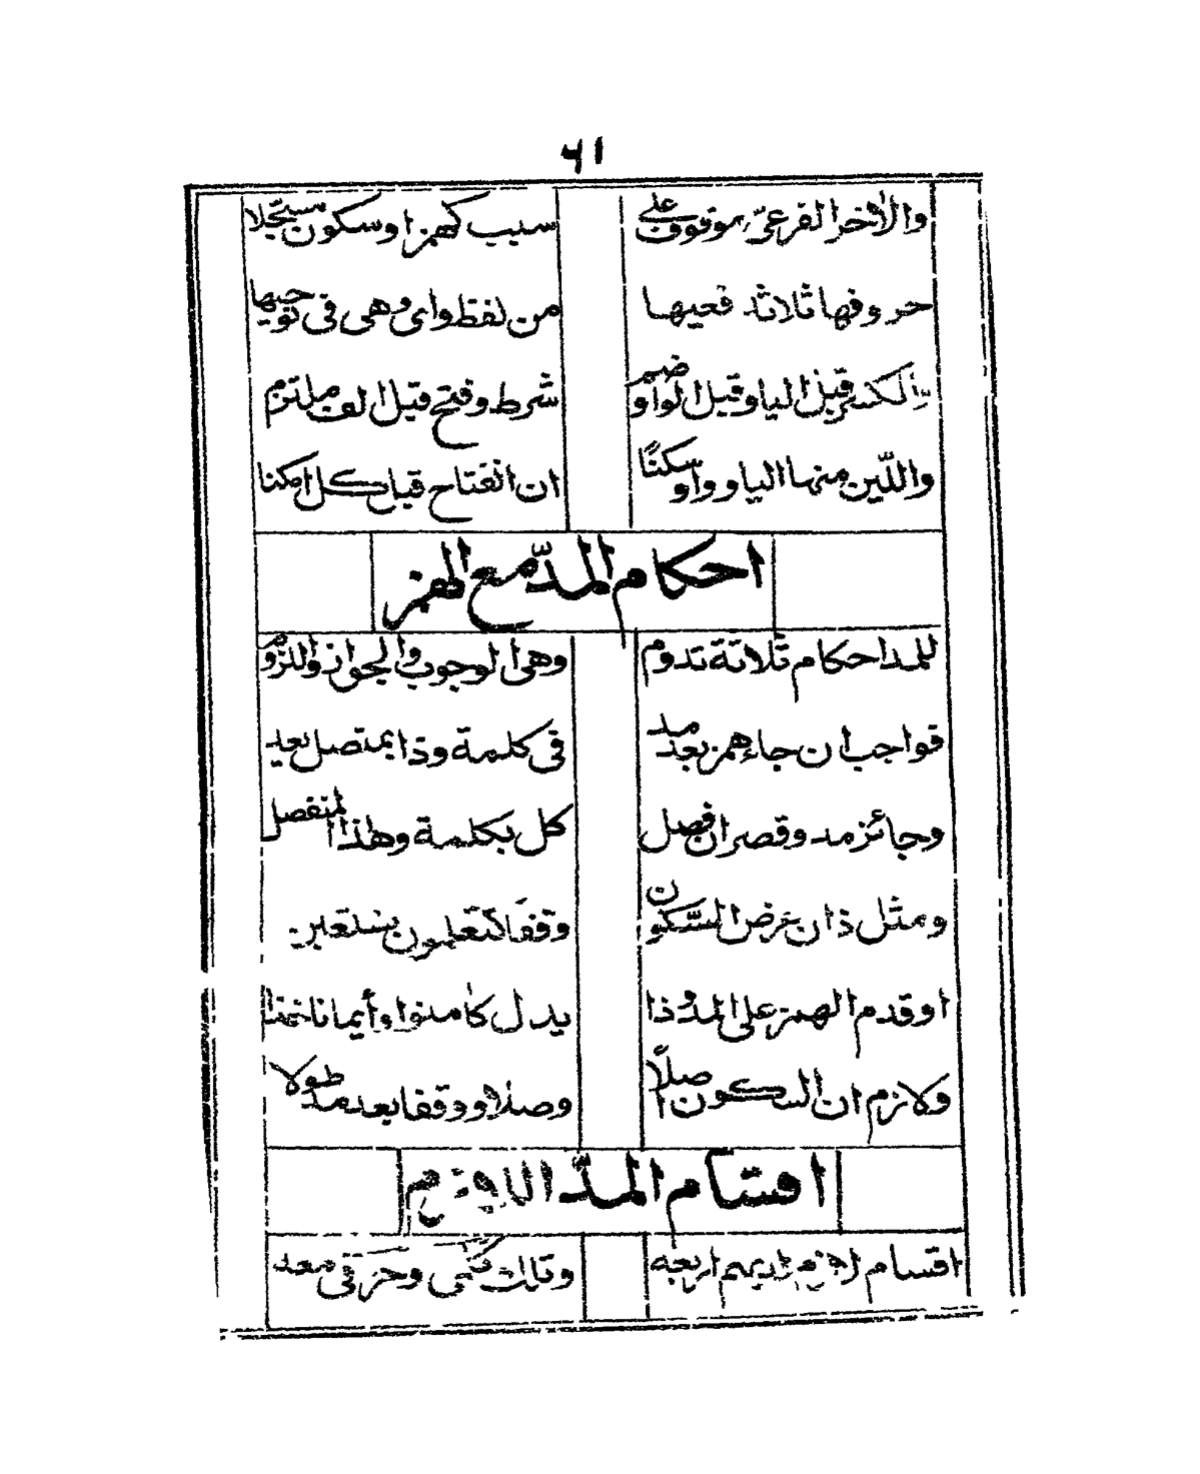 ٦١
والآخر الفرعيّ موقوف على سبب كهمز او سكون مسجلا
حروفها ثلاثة فعيها من لفظ واى وهى فى نوحيها
والكسر قبل اليا وقبل الواو ضم شرط وفتح قبل الف ملتزم
واللّين منها اليا وواو سكنًا ان انفتاح قبل كل امكنا
احكام المدّ مع الهمز
للمد احكام ثلاثة تدوم وهى الوجوب والجواز واللزوم
فواجب ان جاء همز بعد مد فى كلمة وذا بمتصل يعد
وجائز مد وقصر ان فصل كل بكلمة وهذا المنفصل
ومثل ذا ان عرض السّكون وقفا كتعلمون نستعين
او قدم الهمز على المد وذا بدل كآمنوا وأيمانا خذا
ولازم ان السكون اصلًا وصلا ووقفا بعد مد طولا
اقسام المدّ اللازم
اقسام لازم لديهم اربعه وتلك كلمى وحرفى معه